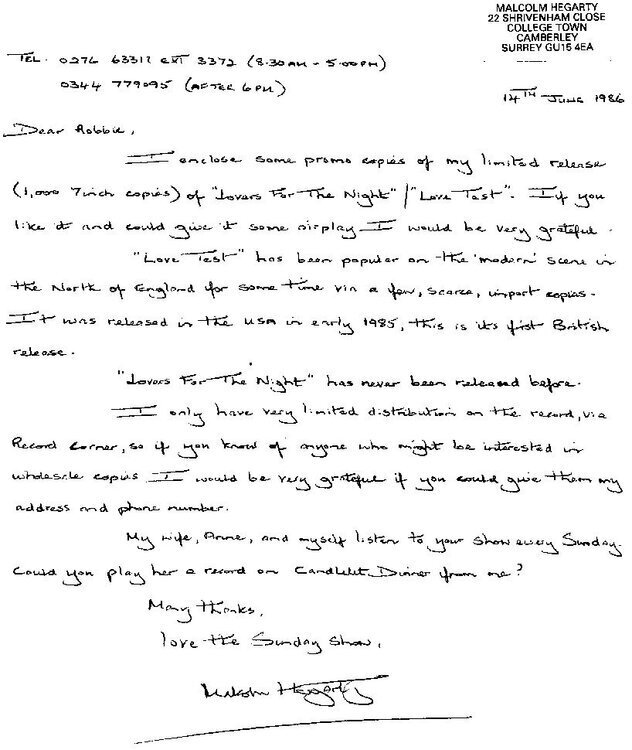 MALCOLM HEGARTY
22 SHRIVENHAM CLOSE
COLLEGE TOWN
CAMBERLEY
SURREY GU15 4EA
TEL. 0276 63311 EXT 3372 (8.30AM - 5.00PM)
0344 779095 (AFTER 6PM)
14TH June 1986
Dear Robbie,
I enclose some promo copies of my limited release
(1,000 7inch copies) of "Lovers For The Night" / "Love Test". If you
like it and could give it some airplay I would be very grateful.
"Love Test" has been popular on the 'modern' scene in
the North of England for some time via a few, scarce, import copies.
It was released in the USA in early 1985, this is its first British
release.
"Lovers For The Night" has never been released before.
I only have very limited distribution on the record, via
Record Corner, so if you know of anyone who might be interested in
wholesale copies I would be very grateful if you could give them my
address and phone number.
My wife, Anne, and myself listen to your show every Sunday.
Could you play her a record on Candlelit Dinner from me?
Many thanks,
love the Sunday show,
Malcolm Hegarty